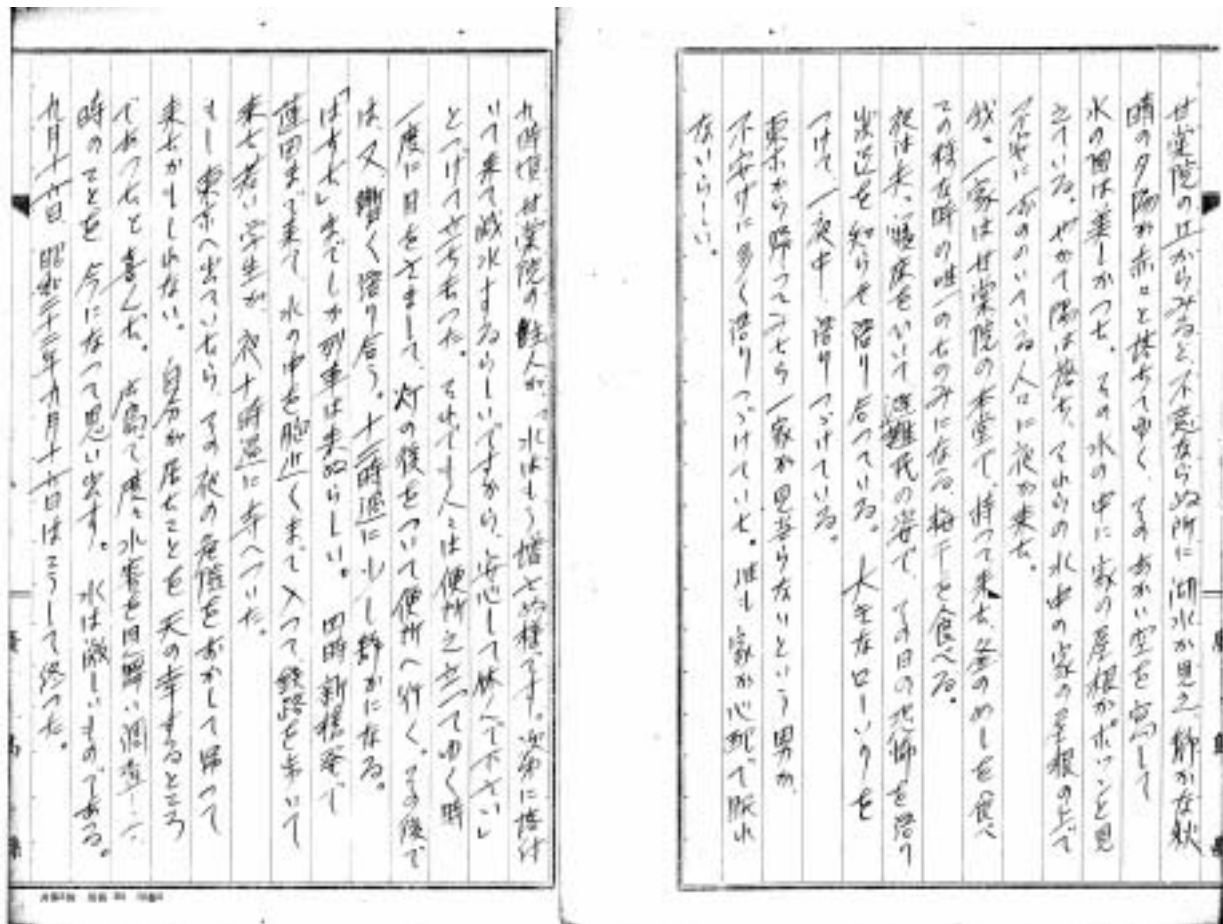 甘棠院の丘からみると、不意ならぬ所に湖水が見え、静かな秋
晴の夕陽が赤々と撓ちてゆく、そのあかい空を写して
水の面は美しかった。その水の中に家の屋根がポツンと見
えている。やがて陽は落ち、それらの水中の家の屋根の上で
不安におののいている人々に夜が来た。
我々一家は甘棠院の本堂で、持って来た釜のめしを食べ
この様な時の唯一のたのみになる、梅干を食べる。
夜は夫々寝床をしいて避難民の姿で、その日の恐怖を語り
出逆を知らせ語り合っている。大きなローソクを
つけて一夜中、語りつづけている。
東京から帰ってきたら一家が見当らないという男が、
不安げに多く語りつづけていた。誰も家が心配で眠れ
ないらしい。
九時頃、甘棠院の主人が、「水はもう増さぬ様です。次第に落付
いて来て減水するらしいですから、安心して休んで下さい」
とつげてさちあった。それでも人々は便所に立ってゆく時
一度に目をさまして、灯の後をついて便所へ行く。その後で
は、又、暫く語り合う。十二時過に少し静かになる。
「はすだ」までしか列車は来ぬらしい。四時新橋発で
蓮田まで来て、水の中を胸近くまで入って鉄路を歩いて
来た若い学生が、夜十時過に寺へついた。
もし東京へ出ていたら、その夜の危険をおかして帰って
来たかもしれない。自分が居たことを天の幸するところ
であったと喜んだ。広島で度々水害を目撃い調査した
時のことを、今になって思い出す。水は激しいものである。
九月十六日、昭和二十二年九月十六日はこうして終った。